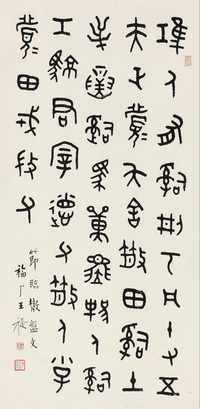 人有司刑丂凡十又五
夫正履夨舍散田司土
屰寅司馬單人司
工黥君宰德父散人小子
履田戎微父
節臨散盤文
福厂王禔